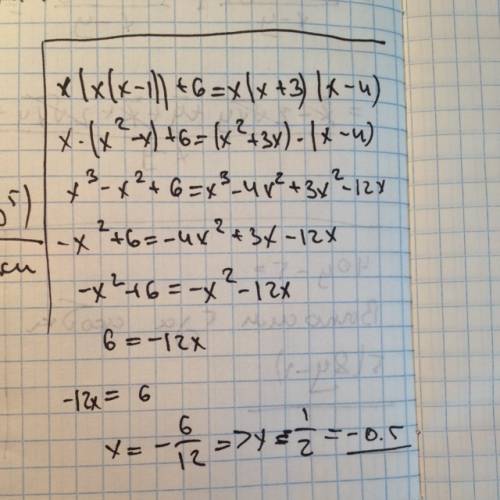 x(x(x-1))+6=x(x+3)(x-4)
x·(x²-x)+6=(x²+3x)·(x-4)
x³-x²+6=x³-4x²+3x²-12x
-x²+6=-4x²+3x-12x
-x²+6=-x²-12x
6=-12x
-12x=6
x=-6/12=>x=1/2=-0.5